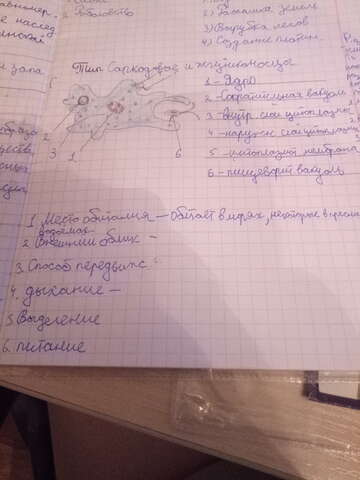 2) Рыболовство
3) Вырубка лесов
4) Создание плотин
Тип Саркодовые и жгутиконосцы
1 - Ядро
2 - Сократительная вакуоль
3 - внутр слой цитоплазмы
4 - наружн слой цитоплазмы
5 - цитоплазмат мембрана
6 - пищеварит вакуоль
2
3 1 6
1. Место обитания — Обитает в морях, некоторые в пресных
водоемах
2. Внешний облик —
3. Способ передвижс -
4. дыхание —
5. Выделение
6. питание